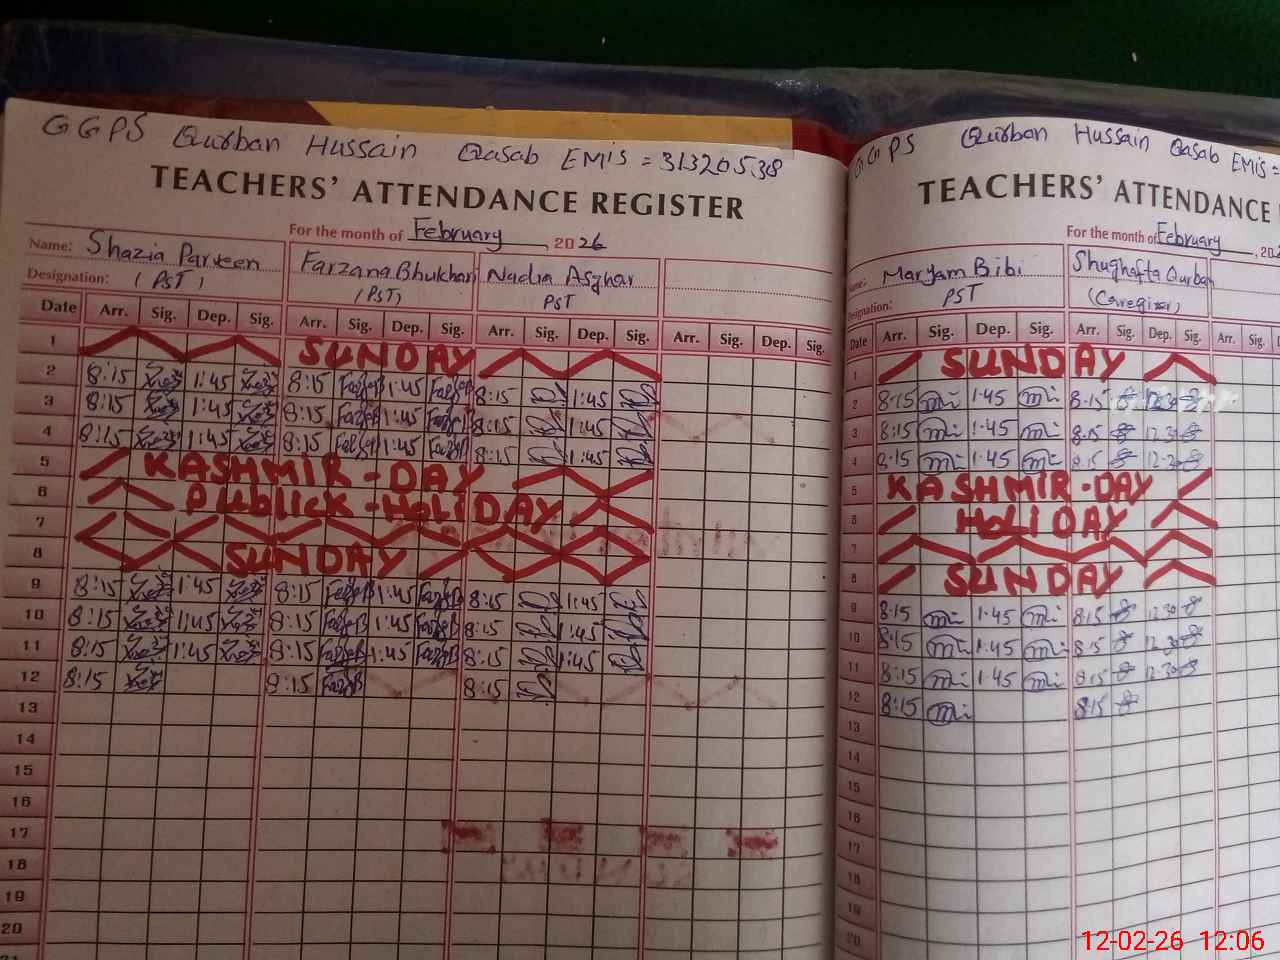 GGPS Qurban Hussain Qasab EMIS = 31320538
TEACHERS' ATTENDANCE REGISTER
For the month of February, 2026
Name: Shazia Parveen Farzana Bhukhari Nadia Asghar
Designation: (PST) (PST) PST
Date Arr. Sig. Dep. Sig. Arr. Sig. Dep. Sig. Arr. Sig. Dep. Sig. Arr. Sig. Dep. Sig.
1 SUNDAY
2 8:15 1:45 8:15 1:45 8:15 1:45
3 8:15 1:45 8:15 1:45 8:15 1:45
4 8:15 1:45 8:15 1:45 8:15 1:45
5 KASHMIR-DAY
6 PUblicK-HoLiDAY
7
8 SUNDAY
9 8:15 1:45 8:15 1:45 8:15 1:45
10 8:15 1:45 8:15 1:45 8:15 1:45
11 8:15 1:45 8:15 1:45 8:15 1:45
12 8:15 8:15 8:15
13
14
15
16
17
18
19
20
GGPS Qurban Hussain Qasab EMIS =
TEACHERS' ATTENDANCE
For the month of February, 202
Name: Maryam Bibi Shughafta Qurban
Designation: PST (Caregiver)
Date Arr. Sig. Dep. Sig. Arr. Sig. Dep. Sig. Arr. Sig.
1 SUNDAY
2 8:15 1:45 8:15 12:30
3 8:15 1:45 8:15 12:30
4 8:15 1:45 8:15 12:30
5 KASHMIR-DAY
6 HoLiDAY
7
8 SUNDAY
9 8:15 1:45 8:15 12:30
10 8:15 1:45 8:15 12:30
11 8:15 1:45 8:15 12:30
12 8:15 8:15
13
14
15
16
17
18
19
20
12-02-26 12:06